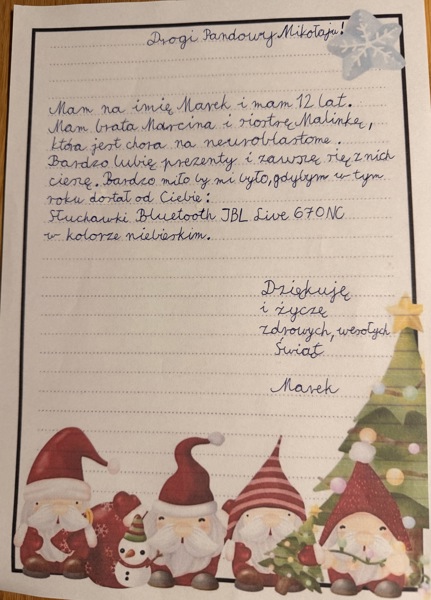 Drogi Pandowy Mikołaju!
Mam na imię Marek i mam 12 lat.
Mam brata Marcina i siostrę Malinkę,
która jest chora na neuroblastome.
Bardzo lubię prezenty i zawsze się z nich
cieszę. Bardzo miło by mi było, gdybym w tym
roku dostał od Ciebie:
Słuchawki Bluetooth JBL Live 670NC
w kolorze niebieskim.
Dziękuję
i życzę
zdrowych, wesołych
Świąt
Marek